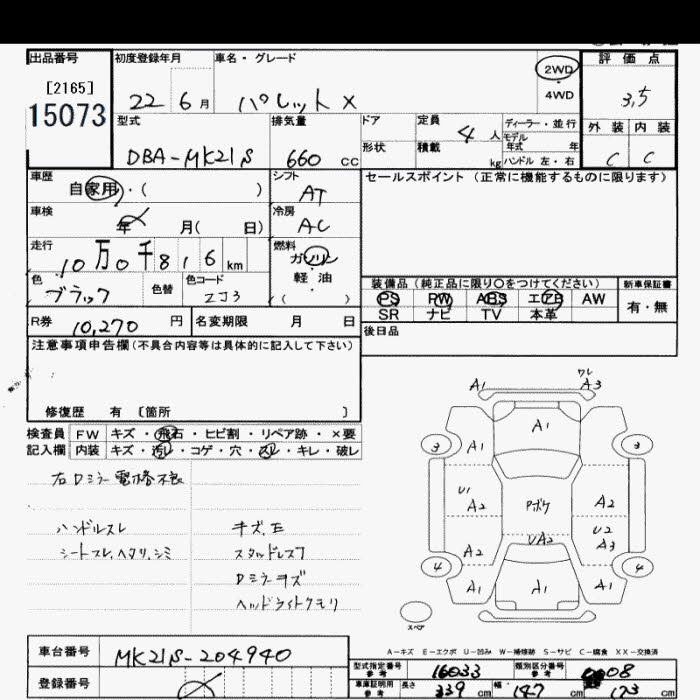 出品番号
[2165]
15073
初度登録年月
22 6月
車名・グレード
パレット X
2WD
4WD
評価点
3,5
外装 内装
C C
型式
DBA-MK21S
排気量
660 cc
ドア
形状
定員
4 人
積載
kg
ディーラー・並行
モデル
年式 年
ハンドル 左・右
車歴
自家用・( )
車検
年 月( 日)
走行
10万0千816km
色
ブラック
色替
色コード
ZJ3
シフト
AT
冷房
AC
燃料
ガソリン
・
軽油
( )
セールスポイント(正常に機能するものに限ります)
装備品(純正品に限り○をつけてください)
PS PW ABS エアB AW
SR ナビ TV 本革
新車保証書
有・無
後日品
R券 10,270 円
名変期限 月 日
注意事項申告欄(不具合内容等は具体的に記入して下さい)
修復歴 有 〔箇所 〕
検査員
記入欄
FW キズ・飛石・ヒビ割・リペア跡・×要
内装 キズ・汚レ・コゲ・穴・スレ・キレ・破レ
右Dミラー電格不良
ハンドルスレ
シートスレ、ヘタリ、シミ
キズ、E
スタッドレス7
Dミラーキズ
ヘッドライトクモリ
A1
ワレ
A3
A1
3
A1
A1
3
U1
A2
Pボケ
A2
U2
A3
UA2
A2
4
A1
A1
A1
4
スペア
A-キズ E-エクボ U-凹み W-補修跡 S-サビ C-腐食 XX-交換済
車台番号
MK21S-204940
登録番号
型式指定番号
参考
16033
類別区分番号
参考
0008
車庫証明用
参考
長さ
339 cm
幅
147 cm
高さ
173 cm